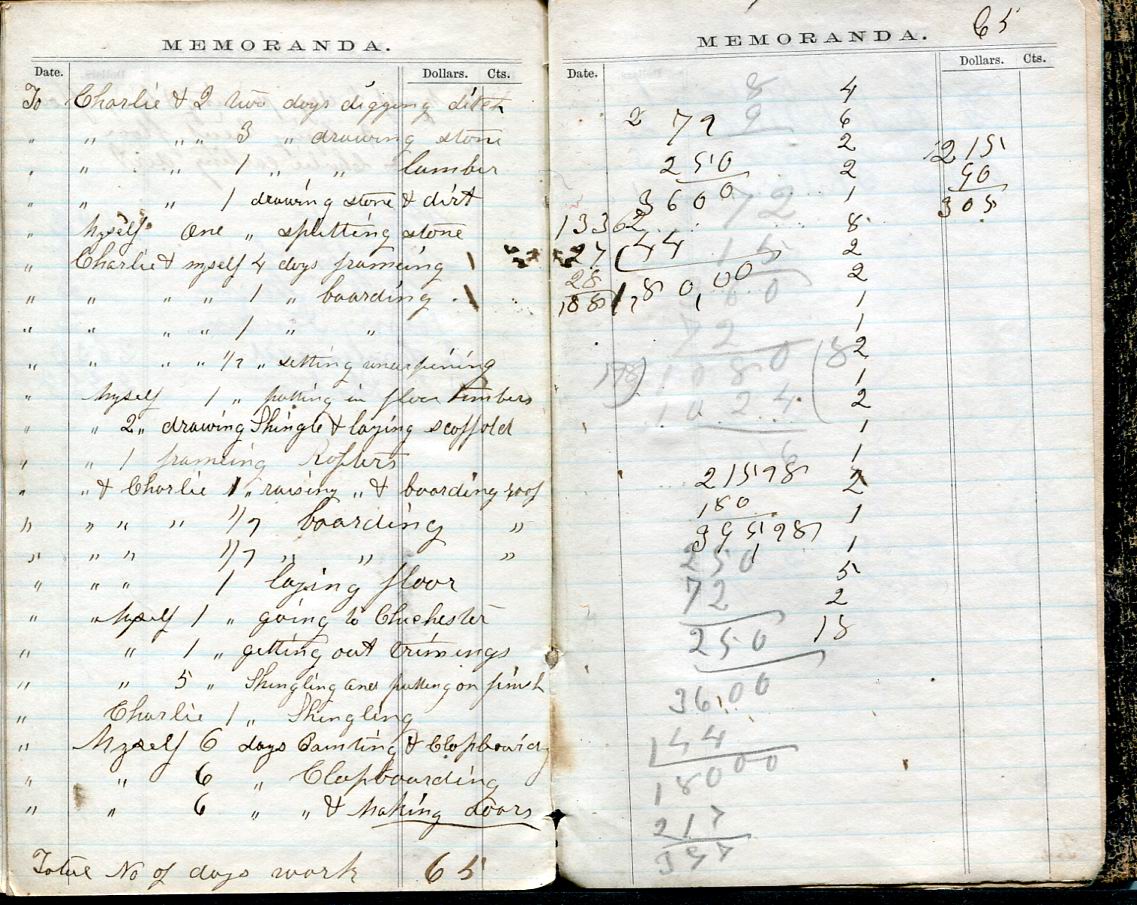 MEMORANDA.
Date. Dollars. Cts.
To Charlie & 2 two days digging ditch
" " " " 3 " drawing stone
" " " 1 " " lumber
" " " 1 drawing stone & dirt
" Myself one " splitting stone
" Charlie & myself 4 days frameing
" " " " 1 " boarding
" " " " 1 " "
" " " " 1/2 " setting underpining
" Myself 1 " putting in floor timbers
" " 2 " drawing Shingle & laying scoffold
" " 1 frameing Rofters
" " & Charlie 1 " raising " & boarding roof
" " " " 1/2 boarding "
" " " 1/2 " " "
" " " 1 laying floor
" " Myself 1 " going to Chichester
" " 1 " getting out trimings
" " 5 " Shingling and putting on finish
" Charlie 1 " Shingling
" Myself 6 days Painting & Clapboarding
" " 6 " Clapboarding
" " 6 " " & Making doors
Total No of days work 65
65
MEMORANDA.
Date. Dollars. Cts.
8 4
2 72 9 6
2
250 2 215
90
3600 72 1 305
8
27 (44 15 2
28 2
188 1,80,00
1
72 1
1080 (8 2
1
1024 2
1
1
21598 2
180 1
39598 1
250
72 5
2
250 18
36,00
144
18000
217
397